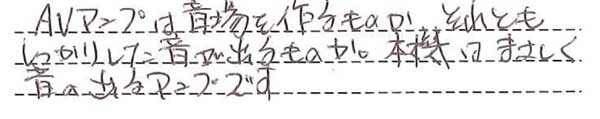 AVアンプは音場を作るものか、それとも
しっかりした音が出るものか。本機はまさしく
音の出るアンプです